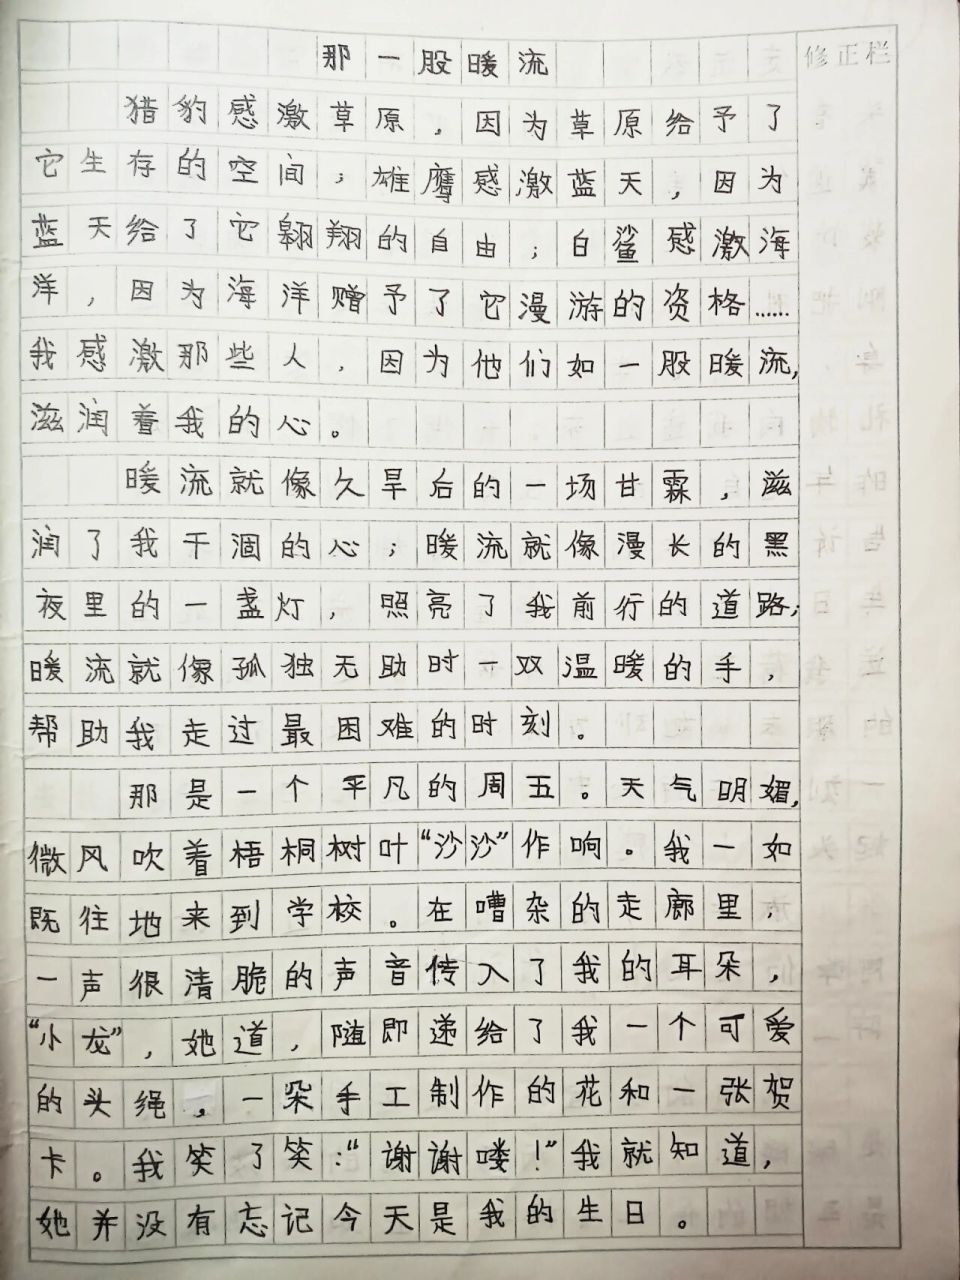 那一股暖流
修正栏
猎豹感激草原，因为草原给予了
它生存的空间；雄鹰感激蓝天，因为
蓝天给了它翱翔的自由；白鲨感激海
洋，因为海洋赠予了它漫游的资格……
我感激那些人，因为他们如一股暖流，
滋润着我的心。
暖流就像久旱后的一场甘霖，滋
润了我干涸的心；暖流就像漫长的黑
夜里的一盏灯，照亮了我前行的道路；
暖流就像孤独无助时一双温暖的手，
帮助我走过最困难的时刻。
那是一个平凡的周五。天气明媚，
微风吹着梧桐树叶“沙沙”作响。我一如
既往地来到学校。在嘈杂的走廊里，
一声很清脆的声音传入了我的耳朵，
“小龙”，她道，随即递给了我一个可爱
的头绳，一朵手工制作的花和一张贺
卡。我笑了笑：“谢谢喽！”我就知道，
她并没有忘记今天是我的生日。